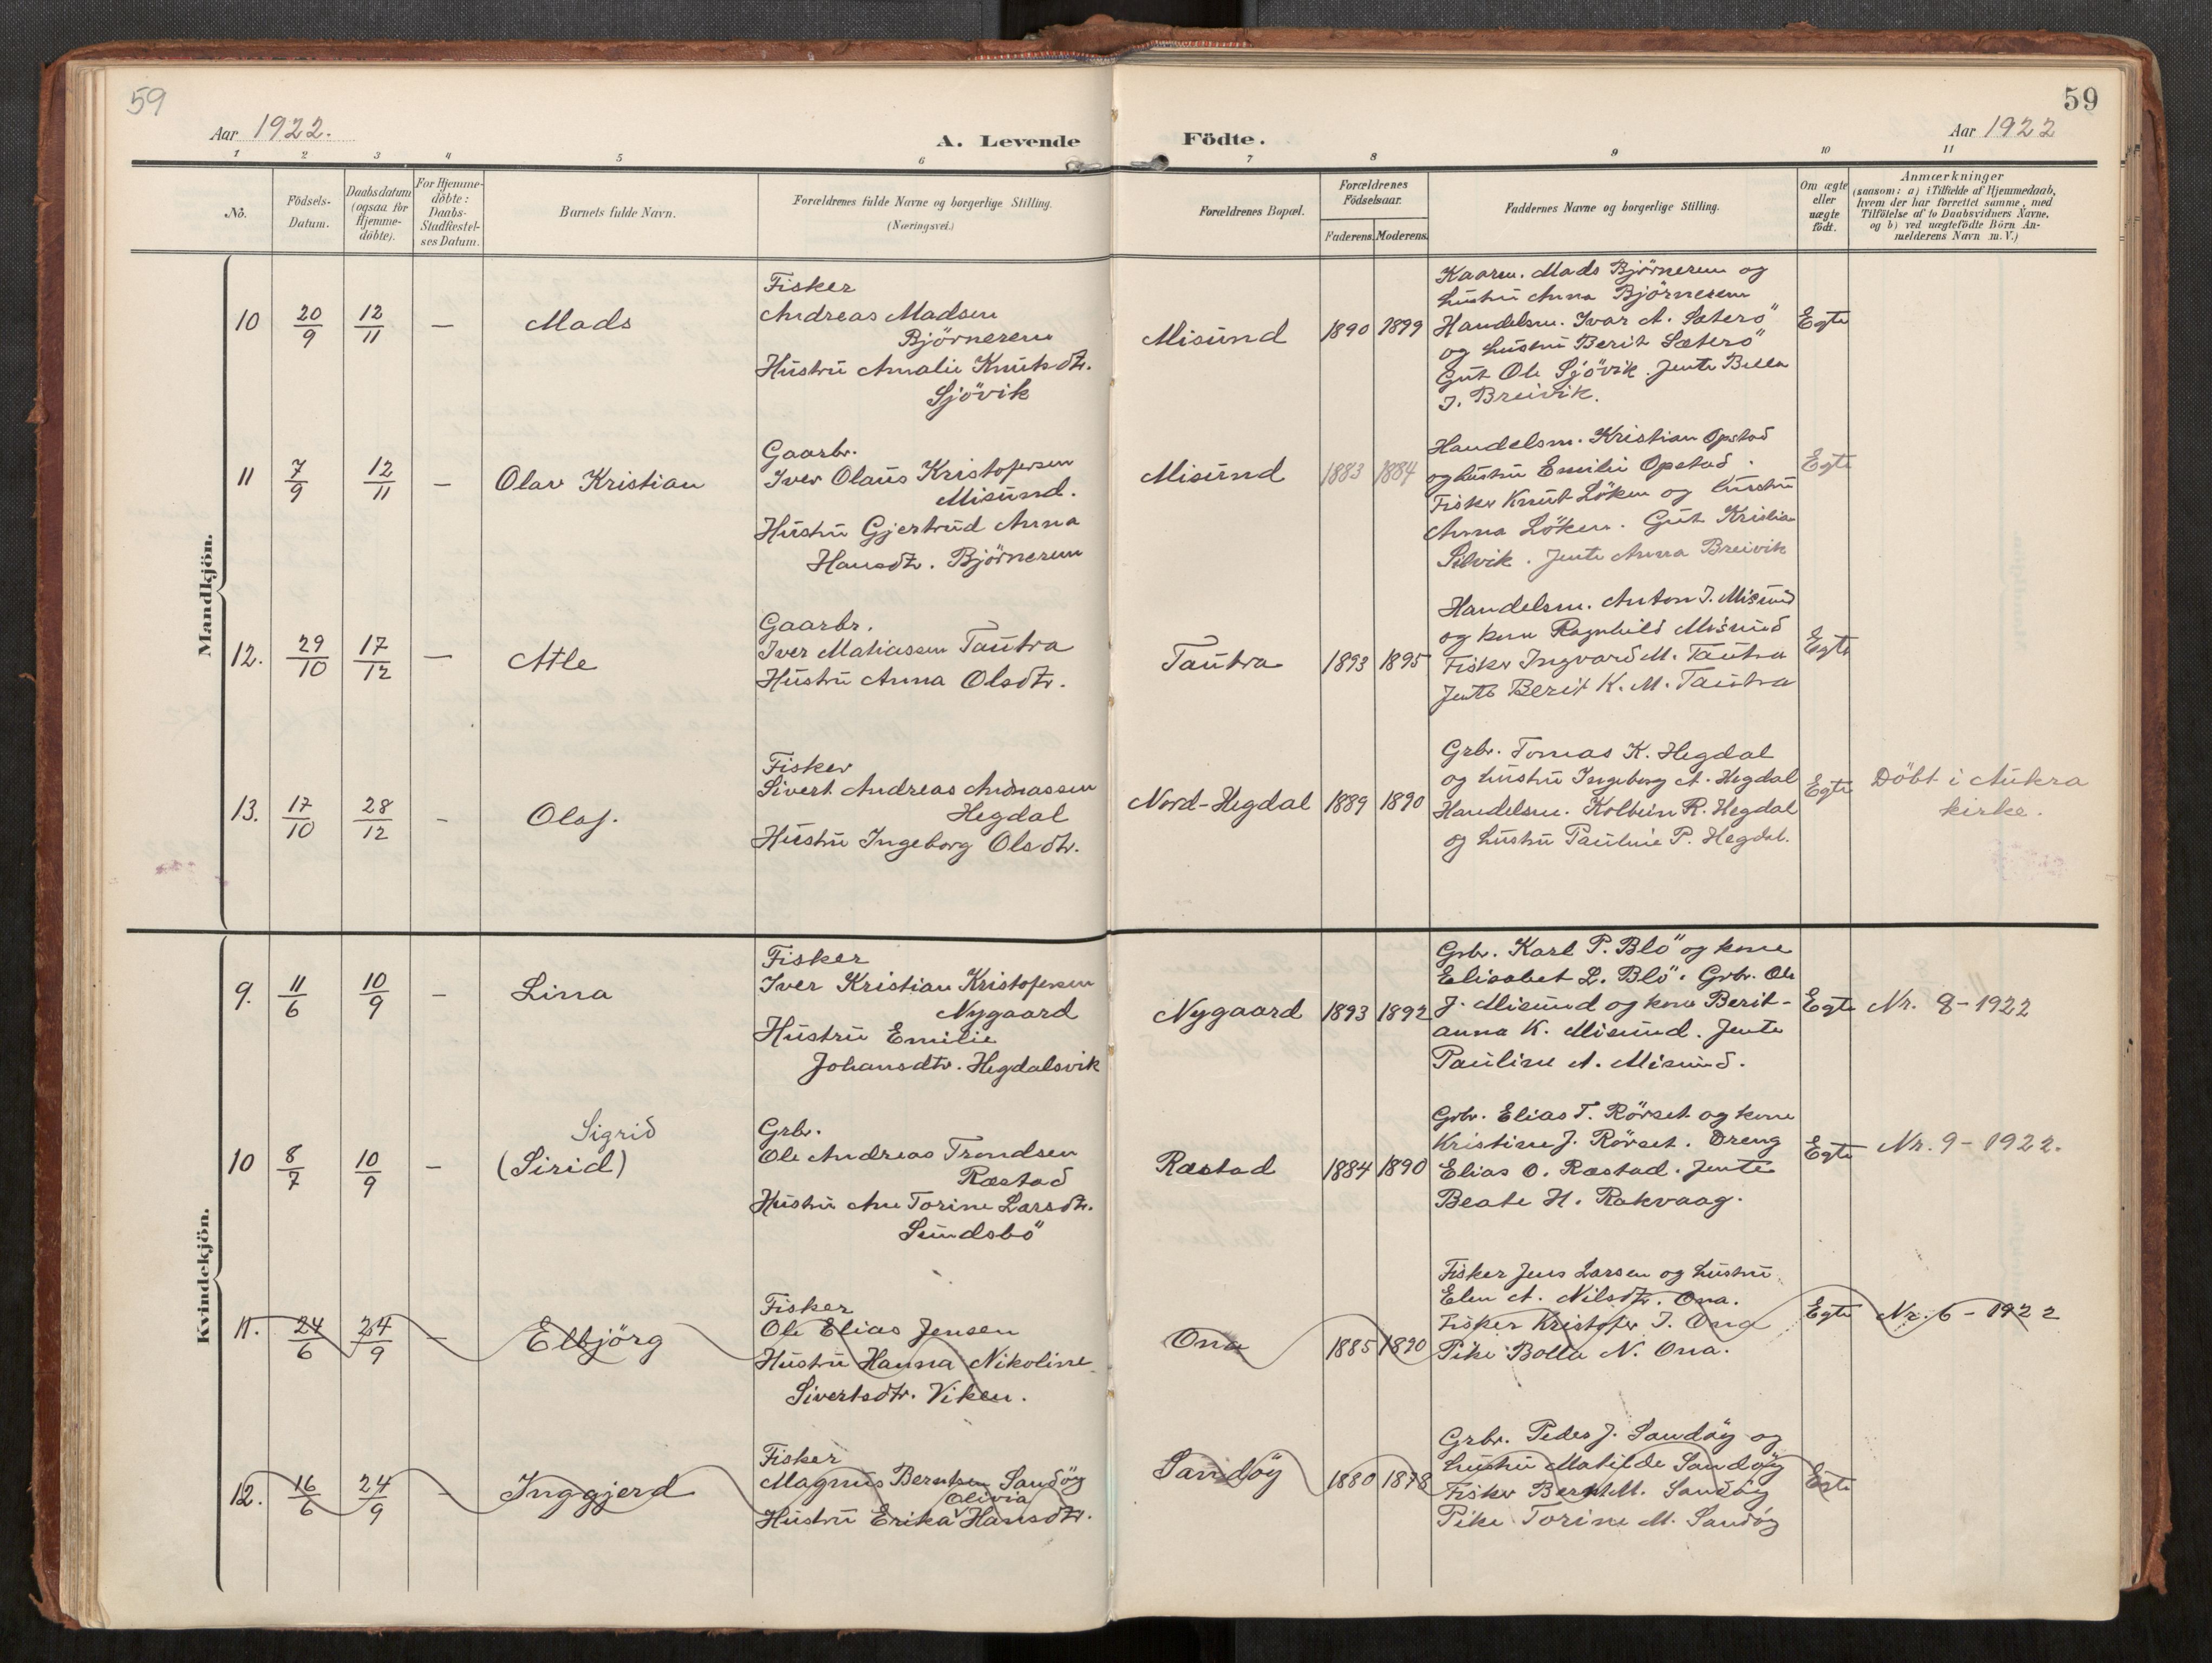 59
Aar 1922.
A. Levende
1 2 3 4 5 6
No.
Födsels-
Datum.
Daabsdatum
(ogsaa for
Hjemme-
döbte).
For Hjemme-
döbte:
Daabs-
Stadfæstel-
ses Datum.
Barnets fulde Navn.
Forældrenes fulde Navne og borgerlige Stilling.
(Næringsvei.)
Mandkjön.
10 20/9 12/11 — Mads
Fisker
Andreas Madsen
Björnerem
Hustru Amalie Knutsdtr.
Sjövik
11 7/9 12/11 — Olav Kristian
Gaarbr.
Iver Olaus Kristofersen
Misund.
Hustru Gjertrud Anna
Hansdtr. Björnerem
12. 29/10 17/12 — Atle
Gaarbr.
Iver Matiassen Tautra
Hustru Anna Olsdtr.
13. 17/10 28/12 - Olaf.
Fisker
Sivert Andreas Andreassen
Hegdal
Hustru Ingeborg Olsdtr.
Kvindekjön.
9. 11/6 10/9 - Lina
Fisker
Iver Kristian Kristofersen
Nygaard
Hustru Emilie
Johansdtr. Hegdalsvik
10 8/7 10/9 - Sigrid
(Sirid)
Grbr.
Ole Andreas Trondsen
Ræstad
Hustru Ane Torine Larsdtr.
Sundsbö
11. 24/6 24/9 - Elbjörg
Fisker
Ole Elias Jensen
Hustru Hanna Nikoline
Sivertsdtr. Viken.
12. 16/6 24/9 - Inggjerd
Fisker
Magnus Berntsen Sandöy
Olivia
Hustru Erika Hansdtr.
59
Födte.
Aar 1922
7 8 9 10 11
Forældrenes Bopæl.
Forældrenes
Födselsaar.
Faderens. Moderens.
Faddernes Navne og borgerlige Stilling.
Om ægte
eller
uægte
födt.
Anmærkninger
(saasom: a) i Tilfælde af Hjemmedaab,
hvem der har forrettet samme, med
Tilföielse af to Daabsvidners Navne,
og b) ved uægtefödte Börn An-
melderens Navn m. V.)
Misund 1890 1899
Kaarm. Mads Björnerem og
hustru Anna Björnerem
Handelsm. Ivar A. Sæterö
og hustru Berit Sæterö
Gut Ole Sjövik. Jente Bella
J. Breivik.
Egte
Misund 1883 1884
Handelsm. Kristian Opstad
og hustru Emilie Opstad.
Fisker Knut Löken og hustru
Anna Löken. Gut Kristian
Silvik. Jente Anna Breivik
Egte
Tautra 1893 1895
Handelsm. Anton J. Misund
og kone Ragnhild Misund
Fisker Ingvard M. Tautra
Jente Berit K. M. Tautra
Egte
Nord-Hegdal 1889 1890
Grbr. Tomas K. Hegdal
og hustru Ingeborg A. Hegdal
Handelsm. Kolbein R. Hegdal
og hustru Pauline P. Hegdal.
Egte
Döbt i Aukra
kirke.
Nygaard 1893 1892
Grbr. Karl P. Blö og kone
Elisabet L. Blö. Grbr. Ole
J. Misund og kone Berit-
anna K. Misund. Jente
Pauline A. Misund.
Egte Nr. 8 - 1922
Ræstad 1884 1890
Grbr. Elias T. Rörset og kone
Kristine J. Rörset. Dreng
Elias O. Ræstad. Jente
Beate H. Rakvaag.
Egte Nr. 9 - 1922.
Ona 1885 1890
Fisker Jens Larsen og hustru
Elen A. Nilsdtr. Ona.
Fisker Kristofer J. Ona
Pike Bolla N. Ona.
Egte Nr. 6 - 1922
Sandöy 1880 1878
Grbr. Peder J. Sandöy og
hustru Matilde Sandöy
Fisker Bernt M. Sandöy
Pike Torine M. Sandöy
Egte